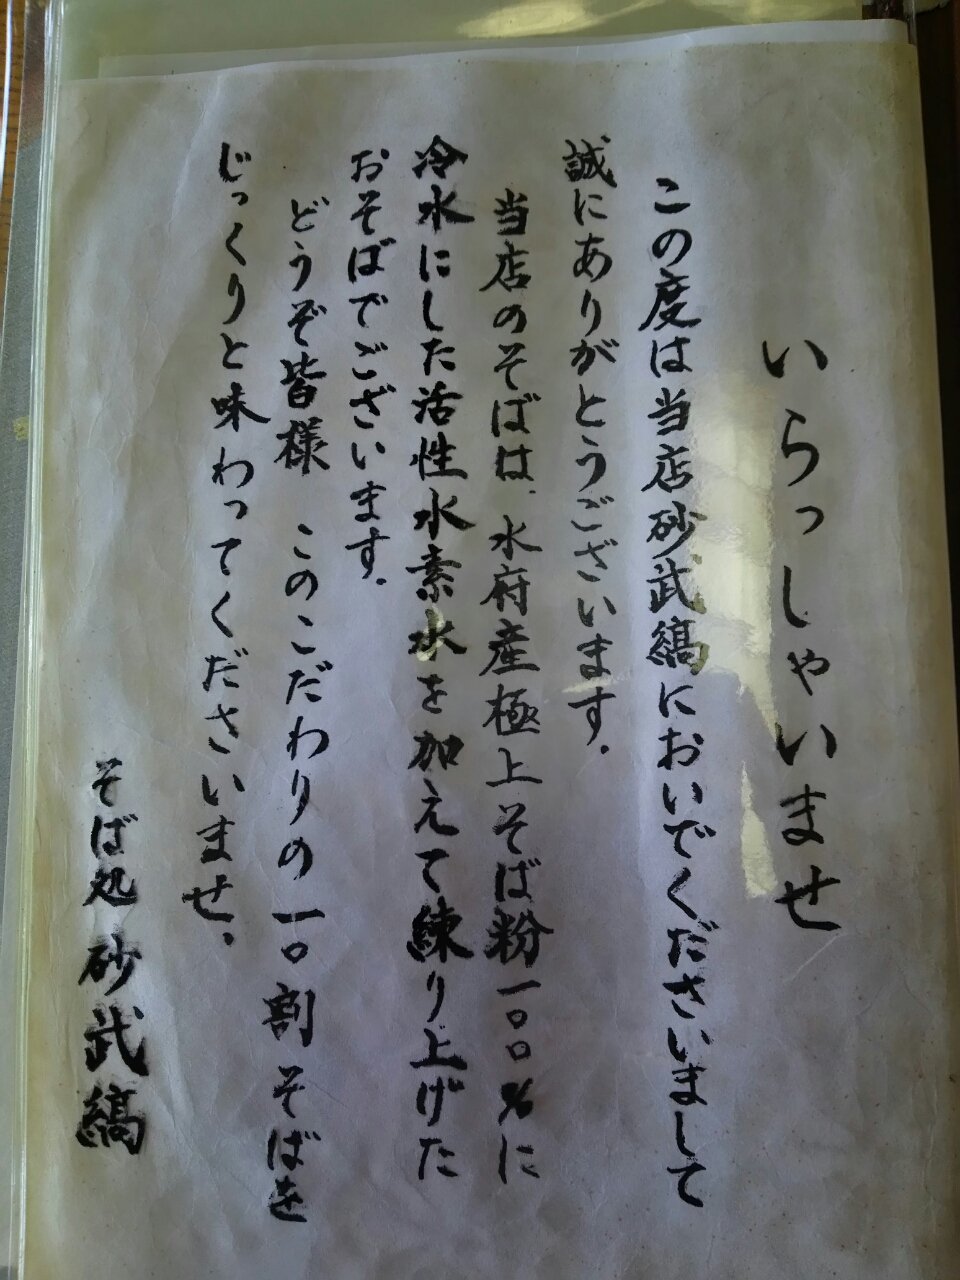 いらっしゃいませ
この度は当店砂武縞においでくださいまして
誠にありがとうございます.
当店のそばは、水府産極上そば粉一〇〇%に
冷水にした活性水素水を加えて練り上げた
おそばでございます.
どうぞ皆様 このこだわりの一〇割そばを
じっくりと味わってくださいませ。
そば処 砂武縞